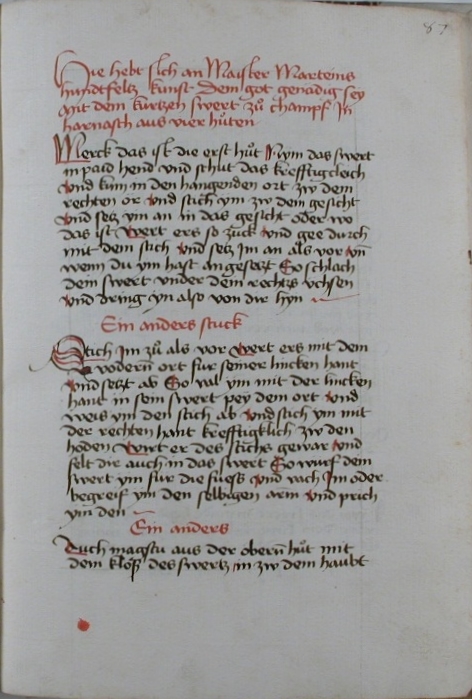 87
Hie hebt sich an Maister Marteins
hundtfeltz kunst Dem got genadig sey
Mit dem kurtzen swert zů champf Jn
harnasch aus vier hůten
Merck das ist die erst hůt Nym das swert
in paid hend vnd schut das krefftigleich
vnd kum in den hangenden ort zw dem
rechten or vnd stich ym zw dem gesicht
vnd setz ym an in das gesicht oder wo
das ist Wert ers so zuck vnd gee durch
mit dem stich vnd setz im an als vor vn̄
wenn du ym hast angesetzt So schlach
dem swert vnder dem rechtē vchsen
vnd dring yn also von dir hyn
Ein anders stuck
Stich Jm zů als vor Wert ers mit dem
vodern ort fur seiner lincken hant
vnd setzt ab So val ym mit der lincken
hant in sein swert pey dem ort vnd
weis ym den stich ab vnd stich ym mit
der rechten hant krefftigklich zw den
hoden Wirt er des stichs gewar vnd
felt dir auch in das swert So wurf dein
swert ym fur die fuess vnd vach Jm oder
begreif ym den selbigen arm vnd prich
ym den
Ein anders
Auch magstu aus der obern̄ hůt mit
dem kloß des swertz in zw dem haubt